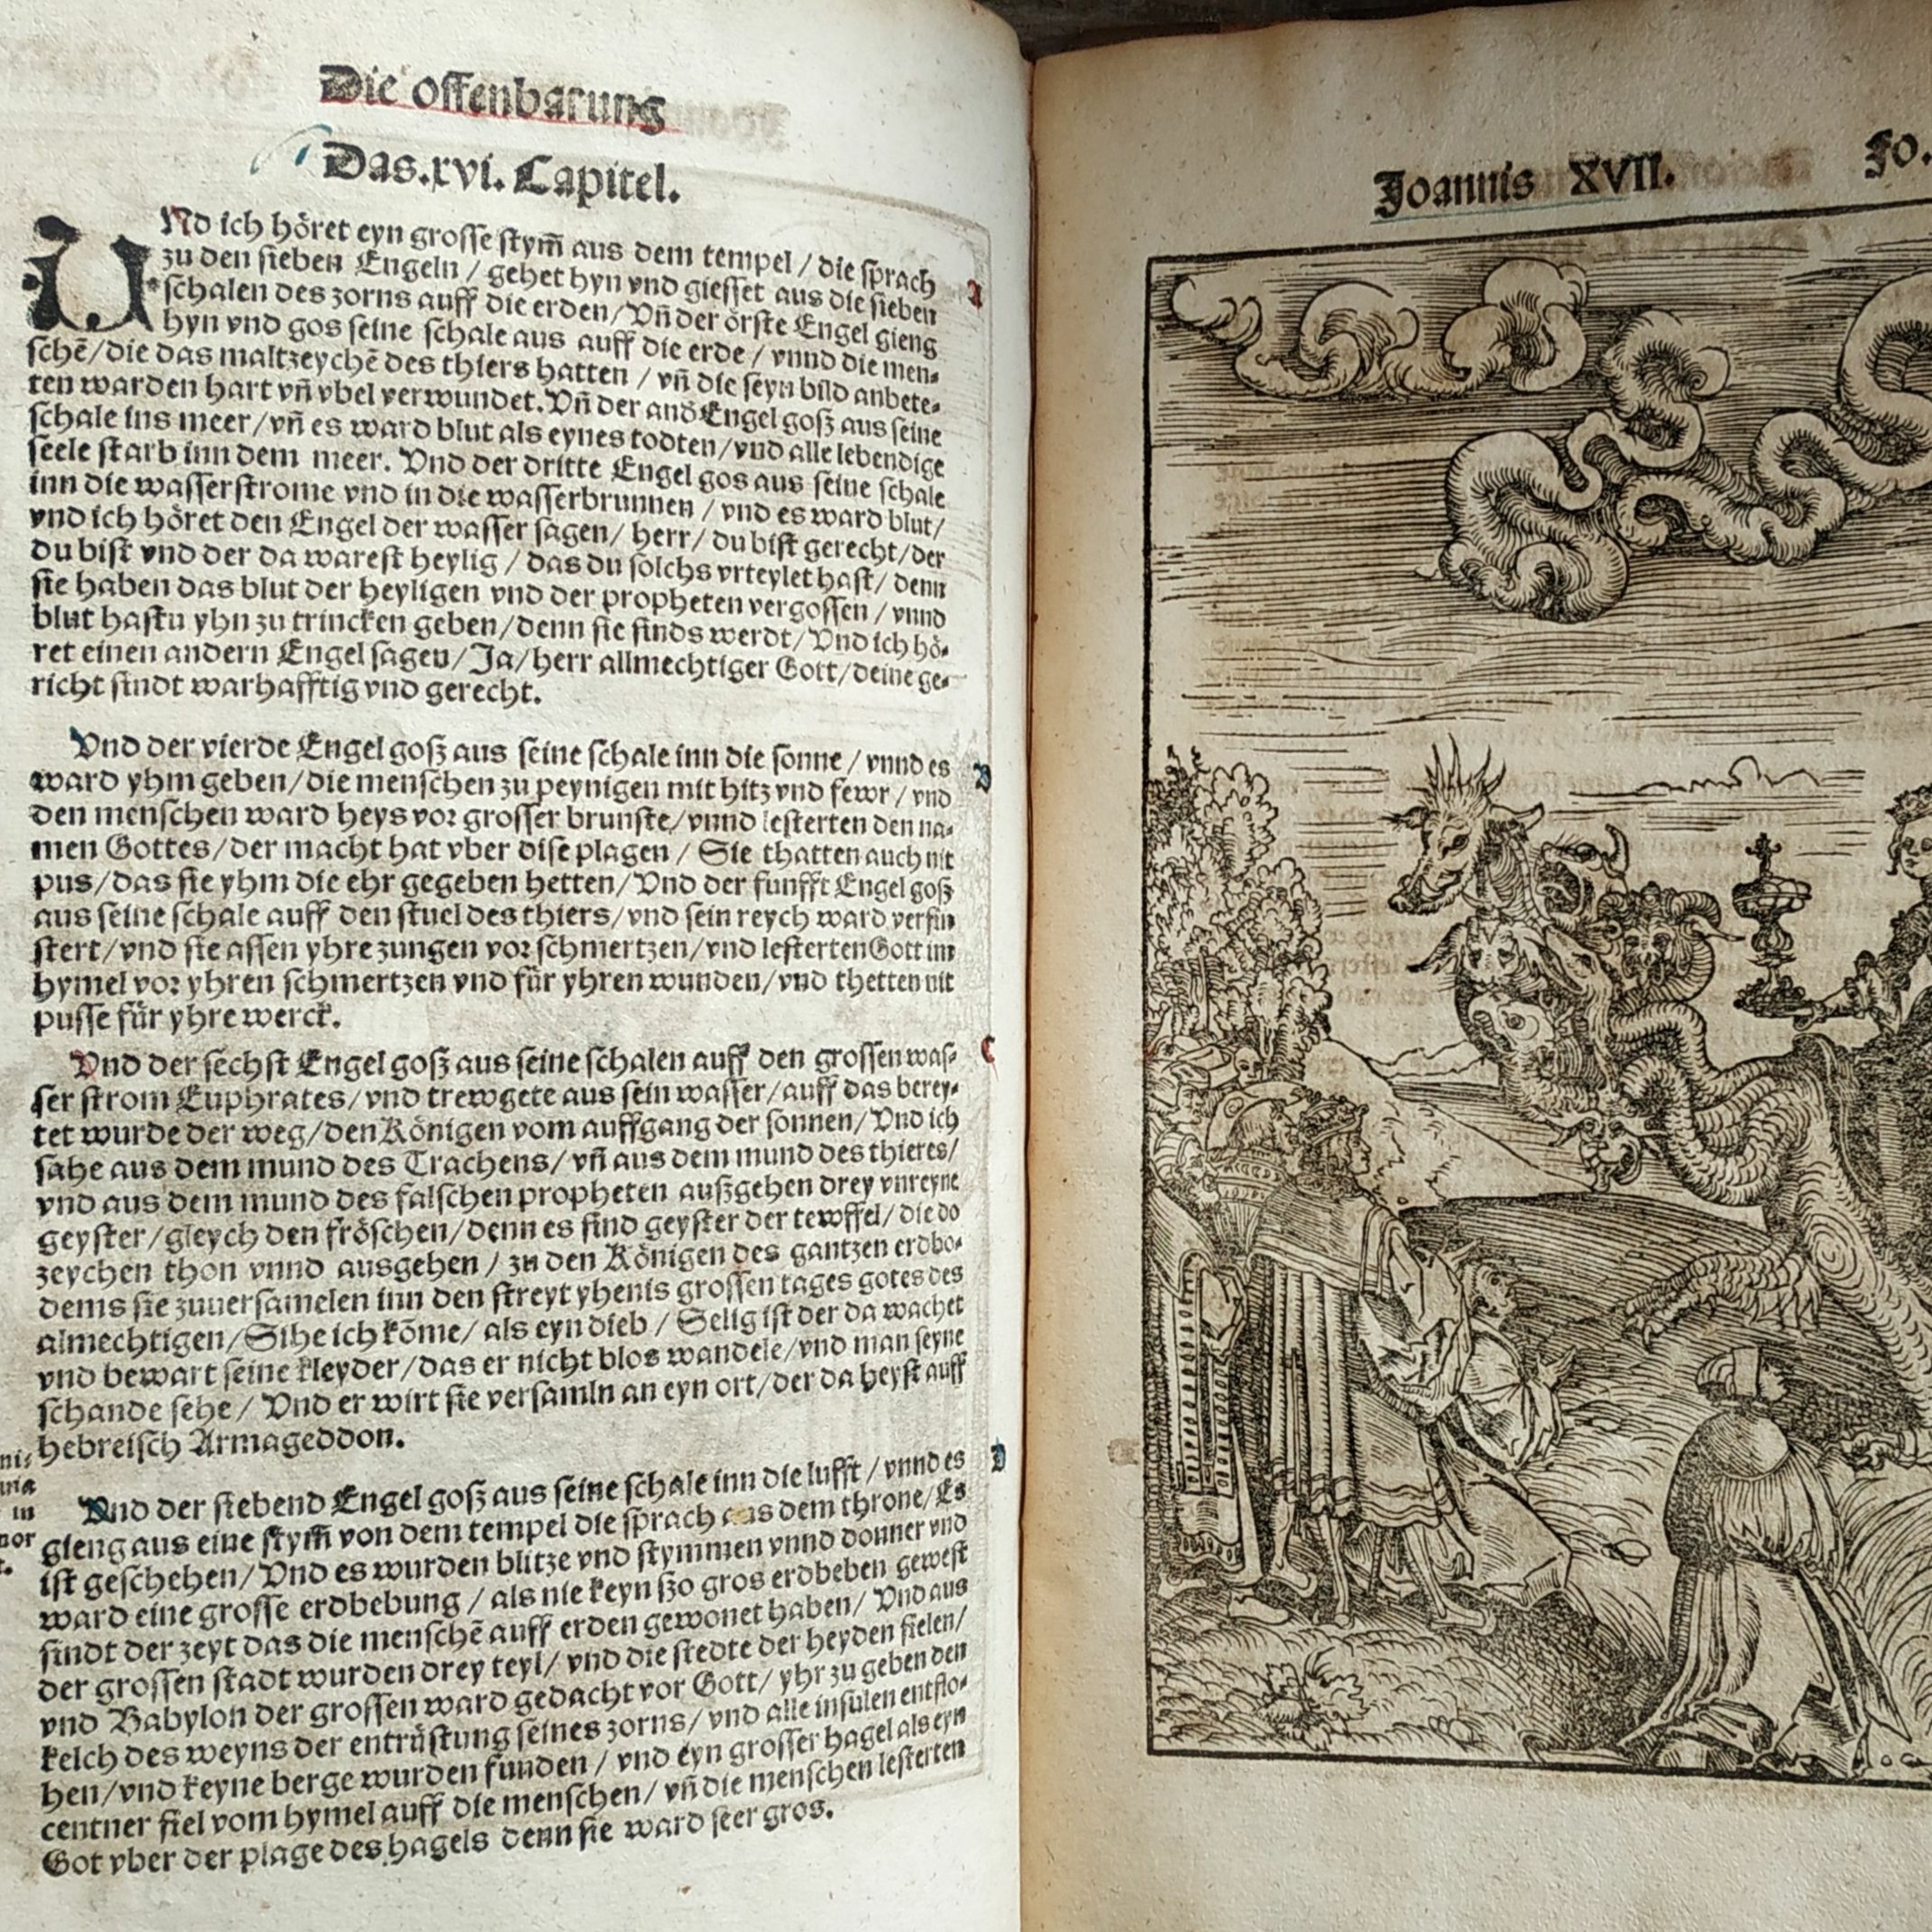 Die offenbarung
Das.xvi. Capitel.
UNd ich höret eyn grosse stym̄ aus dem tempel / die sprach
zu den sieben Engeln / gehet hyn vnd giesset aus die sieben
schalen des zorns auff die erden/Vn̄ der örste Engel gieng
hyn vnd gos seine schale aus auff die erde / vnnd die men-
schē/die das maltzeychē des thiers hatten / vn̄ die seyn bild anbete-
ten warden hart vn̄ vbel verwundet. Vn̄ der and Engel gosz aus seine
schale ins meer/vn̄ es ward blut als eynes todten/vnd alle lebendige
seele starb inn dem meer. Vnd der dritte Engel gos aus seine schale
inn die wasserstrome vnd in die wasserbrunnen / vnd es ward blut/
vnd ich höret den Engel der wasser sagen/ herr/ du bist gerecht/der
du bist vnd der da warest heylig / das du solchs vrteylet hast/ denn
sie haben das blut der heyligen vnd der propheten vergossen / vnnd
blut hastu yhn zu trincken geben/denn sie sinds werdt/ Vnd ich hö-
ret einen andern Engel sagen/ Ja/herr allmechtiger Gott/deine ge-
richt sindt warhafftig vnd gerecht.
Vnd der vierde Engel gosz aus seine schale inn die sonne / vnnd es
ward yhm geben/die menschen zu peynigen mit hitz vnd fewr / vnd
den menschen ward heys vor grosser brunste/vnnd lesterten den na-
men Gottes/der macht hat vber dise plagen / Sie thatten auch nit
pus/das sie yhm die ehr gegeben hetten/Vnd der funfft Engel gosz
aus seine schale auff den stuel des thiers/vnd sein reych ward verfin
stert/vnd sie assen yhre zungen vor schmertzen/vnd lesterten Gott im
hymel vor yhren schmertzen vnd für yhren wunden/vnd thetten nit
pusse für yhre werck.
Vnd der sechst Engel gosz aus seine schalen auff den grossen was-
ser strom Euphrates/vnd trewgete aus sein wasser/auff das berey-
tet wurde der weg/den Königen vom auffgang der sonnen/ Vnd ich
sahe aus dem mund des Trachens/ vn̄ aus dem mund des thieres/
vnd aus dem mund des falschen propheten auszgehen drey vnreyne
geyster/gleych den fröschen/denn es sind geyster der tewffel/ die do
zeychen thon vnnd ausgehen / zu den Königen des gantzen erdbo-
dems sie zuuersamelen inn den streyt yhenis grossen tages gotes des
almechtigen/Sihe ich kōme/ als eyn dieb / Selig ist der da wachet
vnd bewart seine kleyder/das er nicht blos wandele/vnd man seyne
schande sehe / Vnd er wirt sie versamln an eyn ort/der da heyst auff
hebreisch Armageddon.
Vnd der siebend Engel gosz aus seine schale inn die lufft / vnnd es
gieng aus eine stym̄ von dem tempel die sprach aus dem throne/ Es
ist geschehen/ Vnd es wurden blitze vnd stymmen vnnd donner vnd
ward eine grosse erdbebung / als nie keyn szo gros erdbeben gewest
sindt der zeyt das die menschē auff erden gewonet haben/ Vnd aus
der grossen stadt wurden drey teyl/ vnd die stedte der heyden fielen/
vnd Babylon der grossen ward gedacht vor Gott/ yhr zu geben den
kelch des weyns der entrüstung seines zorns/ vnd alle insulen entflo-
hen/vnd keyne berge wurden funden / vnd eyn grosser hagel als eyn
centner fiel vom hymel auff die menschen/ vn̄ die menschen lesterten
Got vber der plage des hagels denn sie ward seer gros.
A
B
C
D
in
Joannis XVII. Fo.